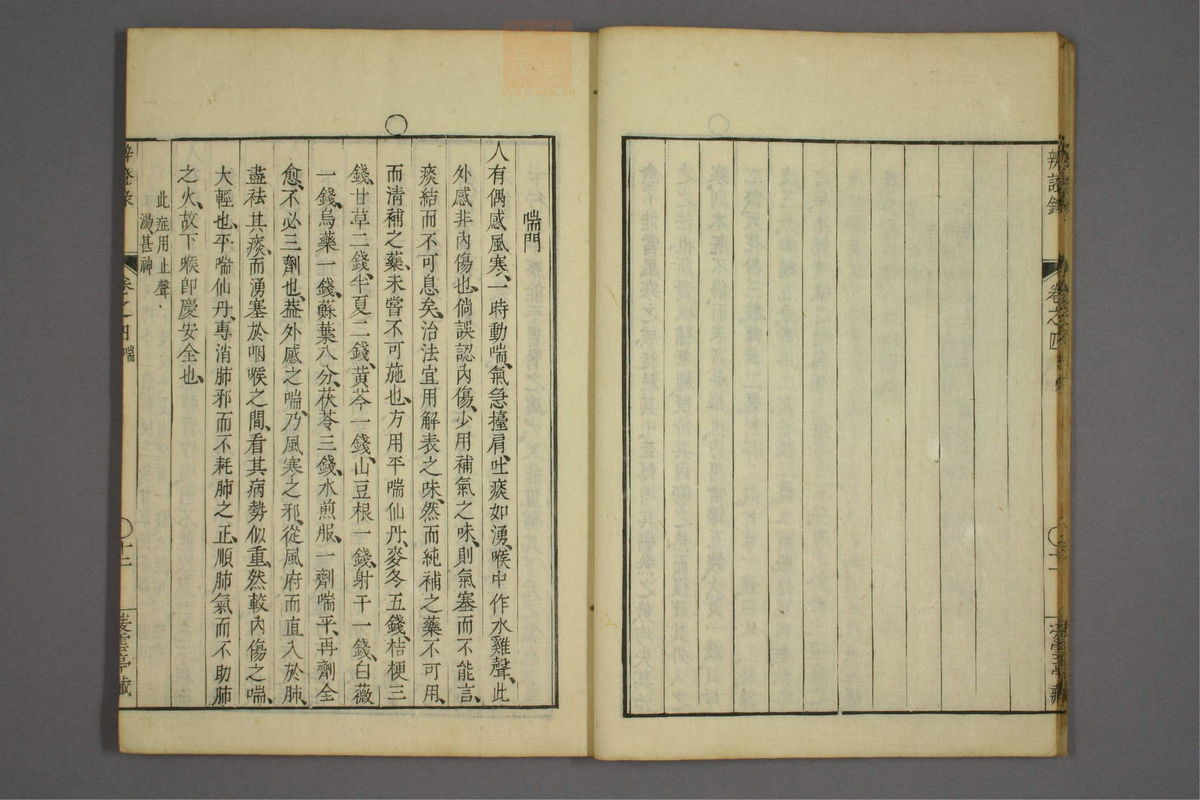 辨證錄
卷之四
喘門
人有偶感風寒、一時動喘、氣急擡肩、吐痰如湧、喉中作水雞聲、此
外感非內傷也、倘誤認內傷、少用補氣之味、則氣塞而不能言、
痰結而不可息矣、治法宜用解表之味、然而純補之藥不可用、
而清補之藥、未嘗不可施也、方用平喘仙丹、麥冬五錢、桔梗三
錢、甘草二錢、半夏二錢、黃芩一錢、山豆根一錢、射干一錢、白薇
一錢、烏藥一錢、蘇葉八分、茯苓三錢、水煎服、一劑喘平、再劑全
愈、不必三劑也、葢外感之喘、乃風寒之邪、從風府而直入於肺、
盡祛其痰、而湧塞於咽喉之間、看其病勢似重、然較內傷之喘、
大輕也、平喘仙丹、專消肺邪而不耗肺之正、順肺氣而不助肺
之火、故下喉卽慶安全也、
此症用止聲
湯、甚神
卷之四
喘
十二